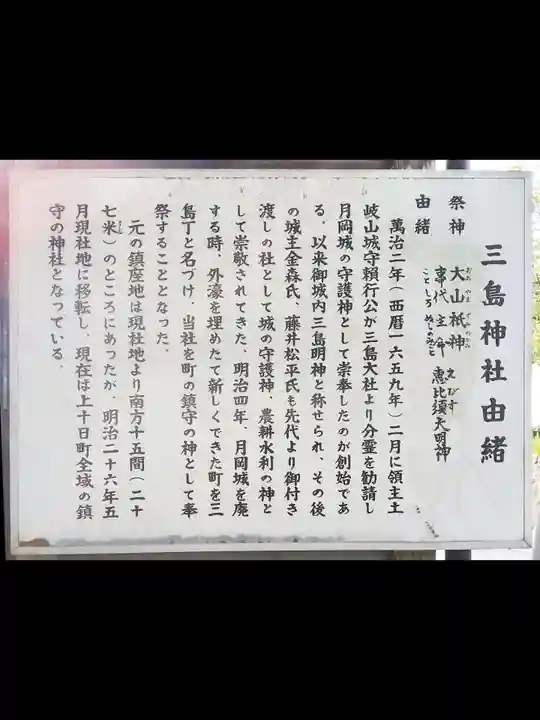 三島神社由緒
祭神 大山祇神 惠比須大明神
おお やま ずみのかみ えびす
事代主命
ことしろ ぬしのみこと
由緒
萬治二年(西暦一六五九年)二月に領主土
岐山城守頼行公が三島大社より分霊を勧請し
月岡城の守護神として崇奉したのが創始であ
る、以来御城内三島明神と称せられ、その後
の城主金森氏、藤井松平氏も先代より御付き
渡しの社として城の守護神、農耕水利の神と
して崇敬されてきた、明治四年、月岡城を廃
する時、外濠を埋めたて新しくできた町を三
島丁と名づけ、当社を町の鎮守の神として奉
祭することとなった。
元の鎮座地は現社地より南方十五間(二十
七米)のところにあったが、明治二十六年五
月現社地に移転し、現在は上十日町全域の鎮
守の神社となっている。